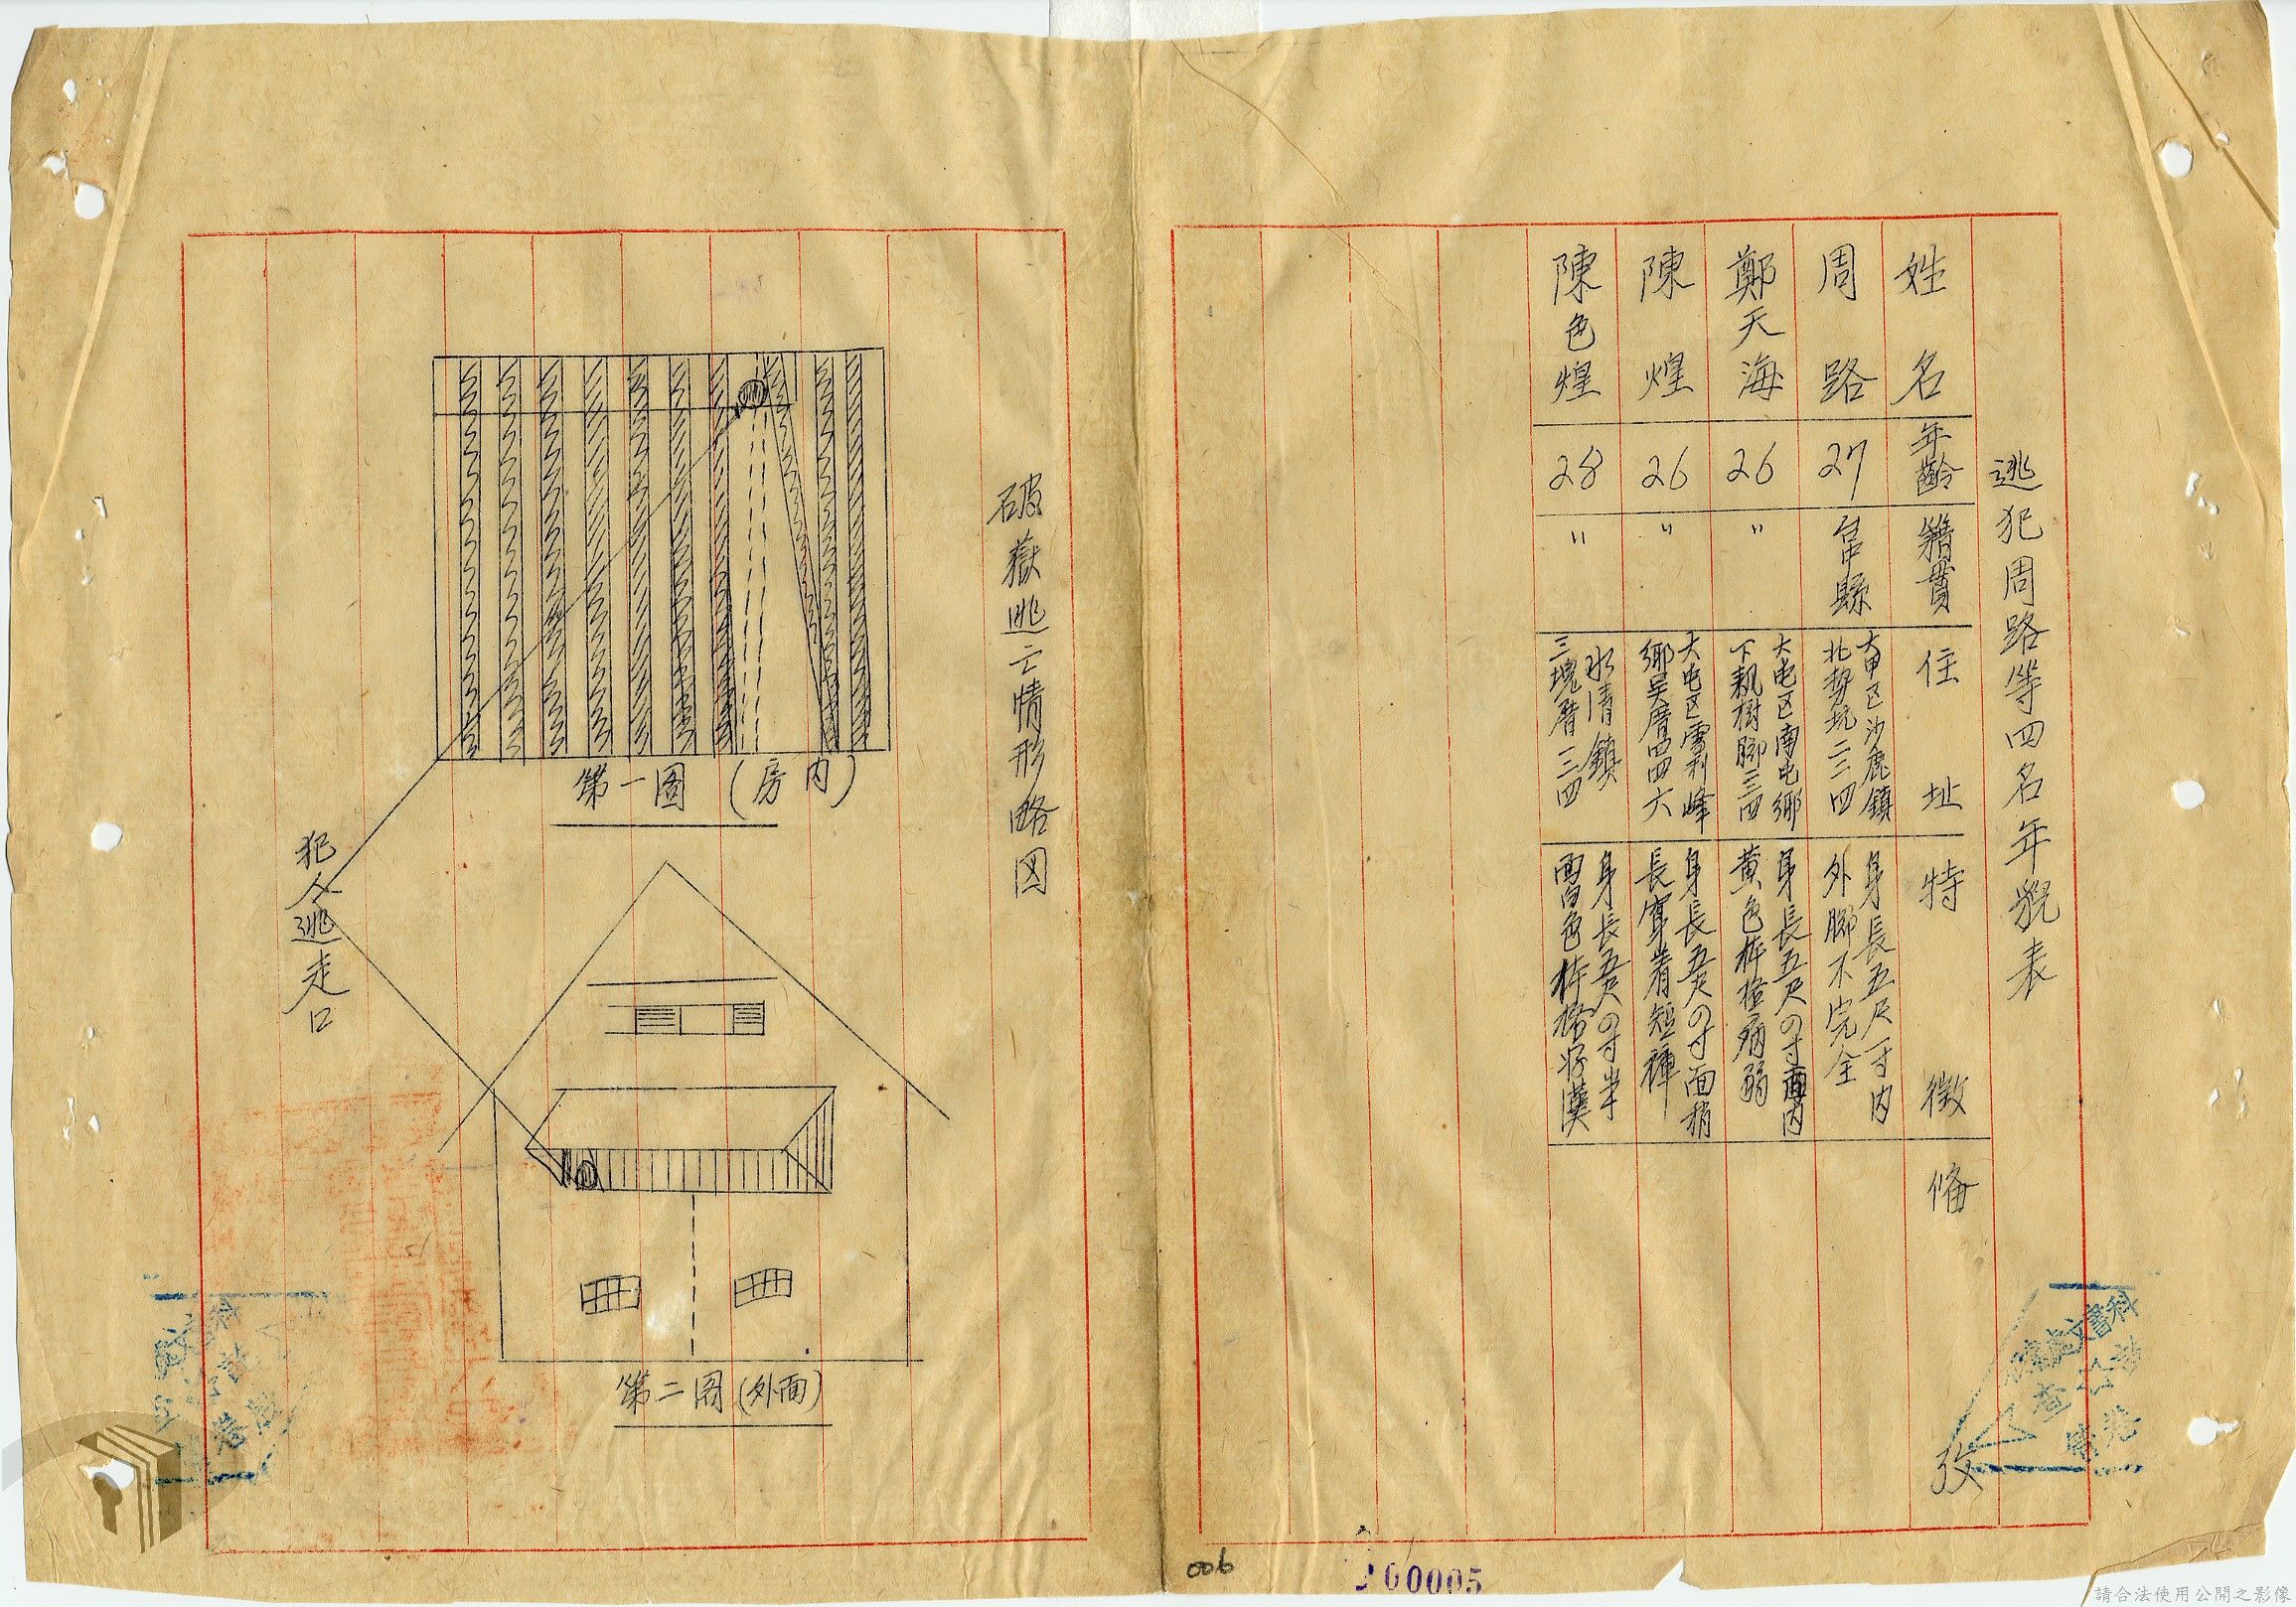 逃犯周路等四名年貌表
姓名 年齡 籍貫 住址 特徵 俻攷
周路 27 台中縣 大甲区沙鹿鎮北勢坑二三四 身長五尺一寸内外脚不完全
鄭天海 26 〃 大屯区南屯鄉下軏樹脚三四 身長五尺の寸内黄色枠格病弱
陳煌 26 〃 大屯区霧峰鄉吴厝四四六 身長五尺の寸面稍長穿着短褲
陳色煌 28 〃 水清鎮三塊厝三四 身長五尺の寸半面白色枠格好漢
破獄逃亡情形略図
第一圖（房内）
犯人逃走口
第二圖（外面）
006
200005
請合法使用公開之影像